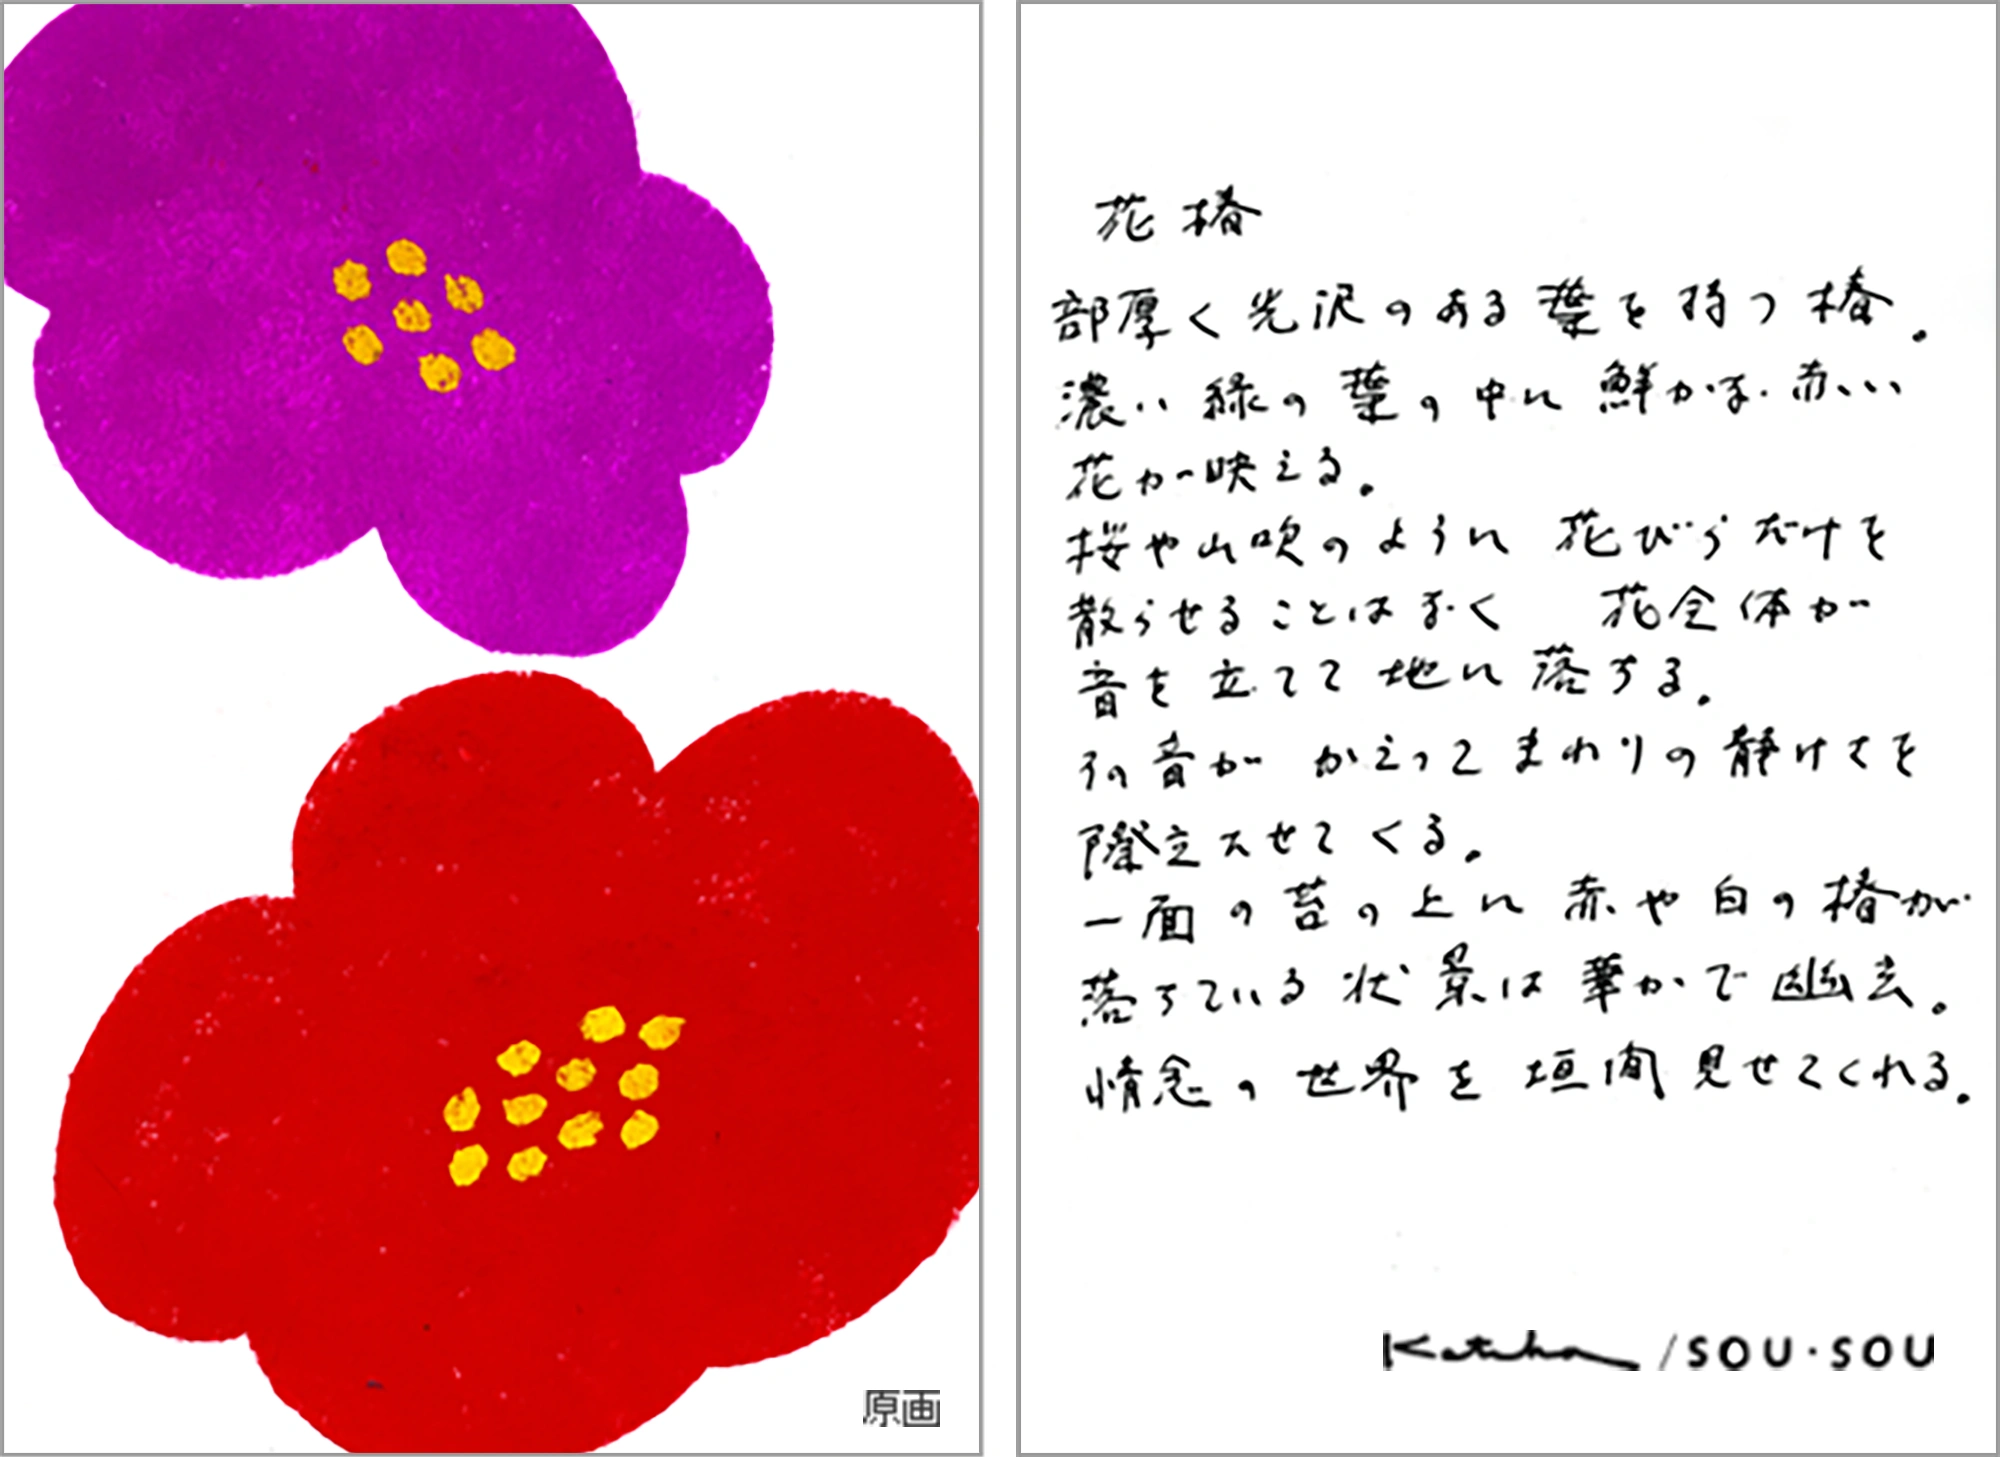 原画
花椿
部厚く光沢のある葉を持つ椿。
濃い緑の葉の中に鮮かな赤い
花が映える。
桜や山吹のように 花びらだけを
散らせることはなく 花全体が
音を立てて地に落ちる。
その音が かえってまわりの静けさを
際立たせてくる。
一面の苔の上に赤や白の椿が
落ちている状景は華かで幽玄。
情念の世界を垣間見せてくれる。
Katsuji / SOU・SOU